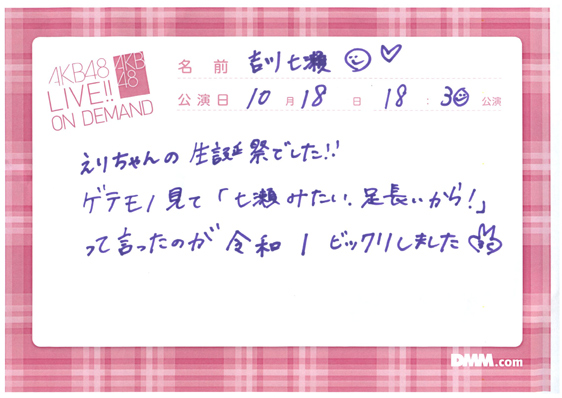 AKB48
LIVE!!
ON DEMAND
AKB
48
名前 吉川七瀬
公演日 10月18日 18:30公演
えりちゃんの生誕祭でした!!
ゲテモノ見て「七瀬みたい、足長いから!」
って言ったのが令和1ビックリしました
DMM.com